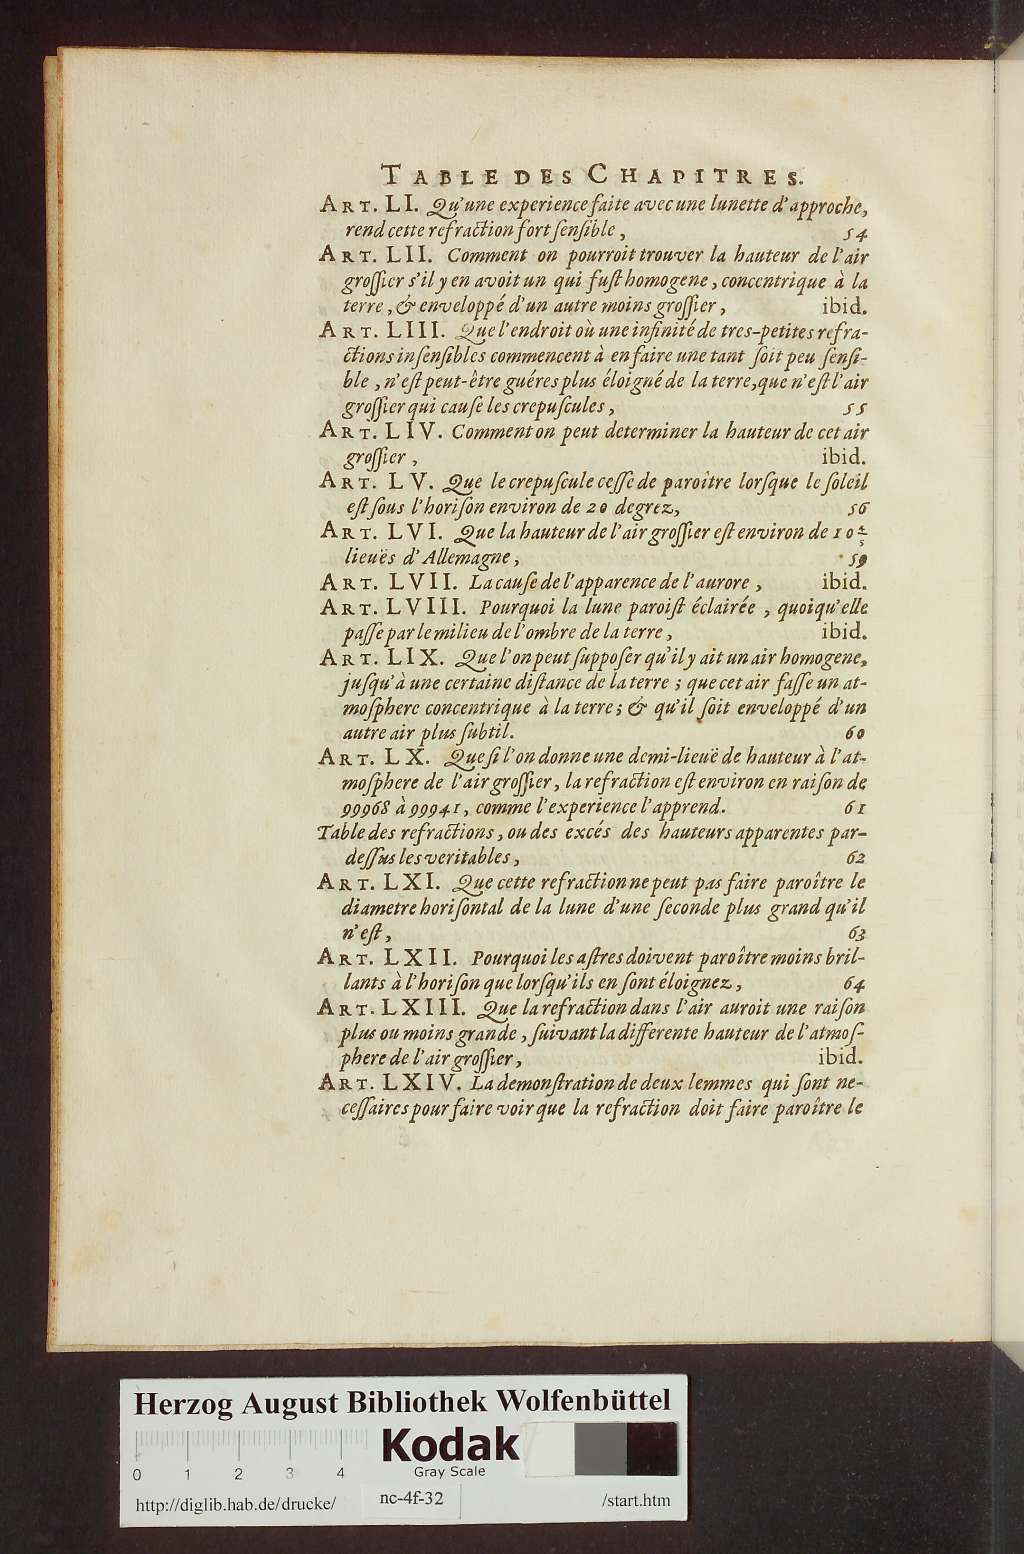 TABLE DES CHAPITRES.
ART. LI. Qu'une experience faite avec une lunette d'approche,
rend cette refraction fort ſenſible, 54
ART. LII. Comment on pourroit trouver la hauteur de l'air
groſſier s'il y en avoit un qui fuſt homogene, concentrique à la
terre, & enveloppé d'un autre moins groſſier, ibid.
ART. LIII. Que l'endroit où une infinité de tres-petites refra-
ctions inſenſibles commencent à en faire une tant ſoit peu ſenſi-
ble, n'eſt peut-être guéres plus éloigné de la terre, que n'eſt l'air
groſſier qui cauſe les crepuſcules, 55
ART. LIV. Comment on peut determiner la hauteur de cet air
groſſier, ibid.
ART. LV. Que le crepuſcule ceſſe de paroître lorſque le ſoleil
eſt ſous l'horiſon environ de 20 degrez, 56
ART. LVI. Que la hauteur de l'air groſſier eſt environ de 10
lieuës d'Allemagne, 59
ART. LVII. La cauſe de l'apparence de l'aurore, ibid.
ART. LVIII. Pourquoi la lune paroiſt éclairée, quoiqu'elle
paſſe par le milieu de l'ombre de la terre, ibid.
ART. LIX. Que l'on peut ſuppoſer qu'il y ait un air homogene,
juſqu'à une certaine diſtance de la terre; que cet air faſſe un at-
moſphere concentrique à la terre; & qu'il ſoit enveloppé d'un
autre air plus ſubtil. 60
ART. LX. Que ſi l'on donne une demi-lieuë de hauteur à l'at-
moſphere de l'air groſſier, la refraction eſt environ en raiſon de
99968 à 99941, comme l'experience l'apprend. 61
Table des refractions, ou des excés des hauteurs apparentes par-
deſſus les veritables, 62
ART. LXI. Que cette refraction ne peut pas faire paroître le
diametre horiſontal de la lune d'une ſeconde plus grand qu'il
n'eſt, 63
ART. LXII. Pourquoi les aſtres doivent paroître moins bril-
lants à l'horiſon que lorſqu'ils en ſont éloignez, 64
ART. LXIII. Que la refraction dans l'air auroit une raiſon
plus ou moins grande, ſuivant la differente hauteur de l'atmoſ-
phere de l'air groſſier, ibid.
ART. LXIV. La demonſtration de deux lemmes qui ſont ne-
ceſſaires pour faire voir que la refraction doit faire paroître le
Herzog August Bibliothek Wolfenbüttel
Kodak
Gray Scale
0 1 2 3 4
http://diglib.hab.de/drucke/ nc-4f-32 /start.htm